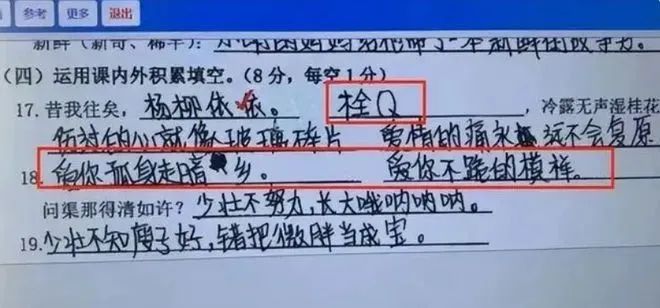 参考 更多 退出
(四)运用课内外积累填空。(8分,每空1分)
17. 昔我往矣,杨柳依依。 栓Q,冷露无声湿桂花
伤过的心就像玻璃碎片 爱情的痛永远不会复原
18. 爱你孤身走暗乡。 爱你不跪的模样。
问渠那得清如许?少壮不努力,长大哦呐呐呐。
19. 少壮不知瘦子好,错把微胖当成宝。